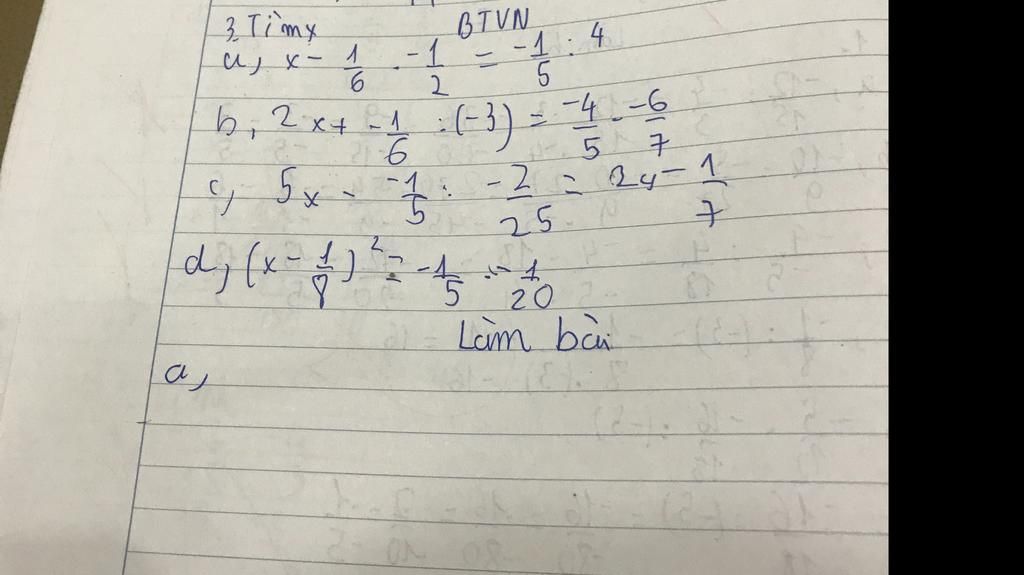 3, Tìm x BTVN
a, x - 1/6 . -1/2 = -1/5 : 4
b, 2x + -1/6 : (-3) = -4/5 . -6/7
c, 5x - -1/5 : -2/25 = 2x - 1/7
d, (x - 1/8)² = -1/5 : -1/20
Làm bài
a,